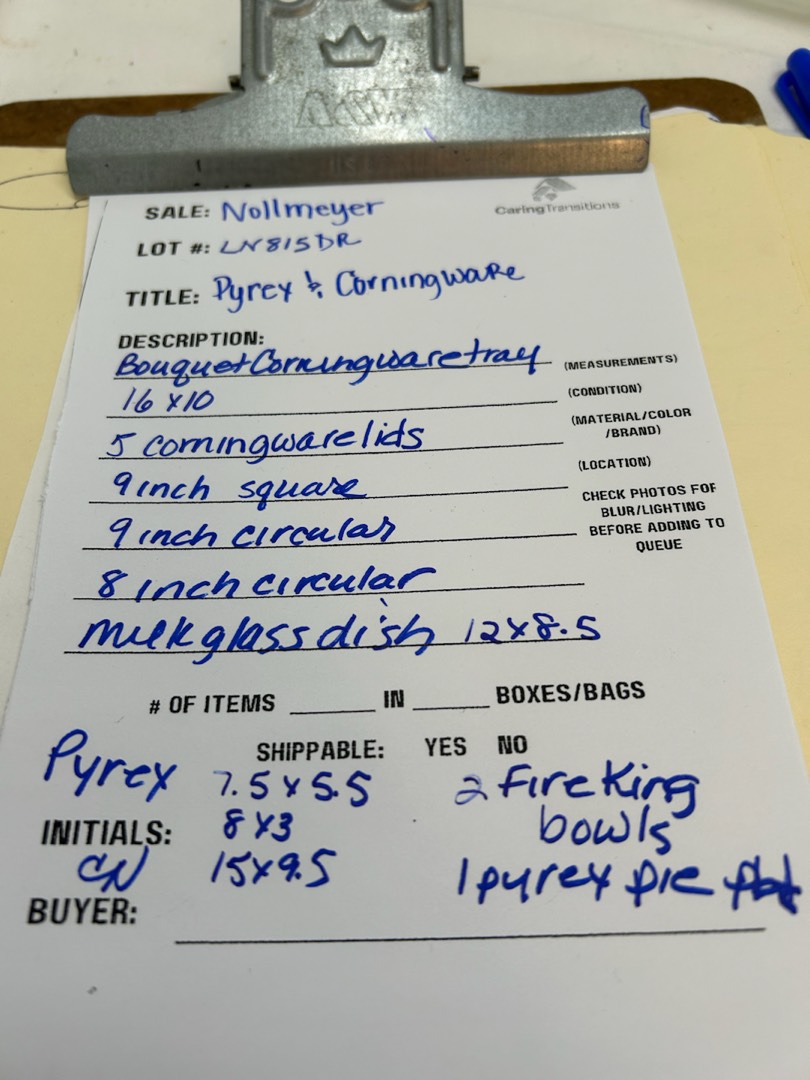 SALE: Nollmeyer
CaringTransitions
LOT #: LN815DR
TITLE: Pyrex & Corningware
DESCRIPTION:
Bouquet Corningware tray (MEASUREMENTS)
16 x 10 (CONDITION)
5 corningware lids (MATERIAL/COLOR
/BRAND)
(LOCATION)
9 inch square
CHECK PHOTOS FOR
BLUR/LIGHTING
BEFORE ADDING TO
QUEUE
9 inch circular
8 inch circular
milk glass dish 12 x 8.5
# OF ITEMS ______ IN ______ BOXES/BAGS
SHIPPABLE: YES NO
Pyrex 7.5 x 5.5
8 x 3
15 x 9.5
2 Fire King
bowls
1 pyrex pie
INITIALS:
CN
BUYER: